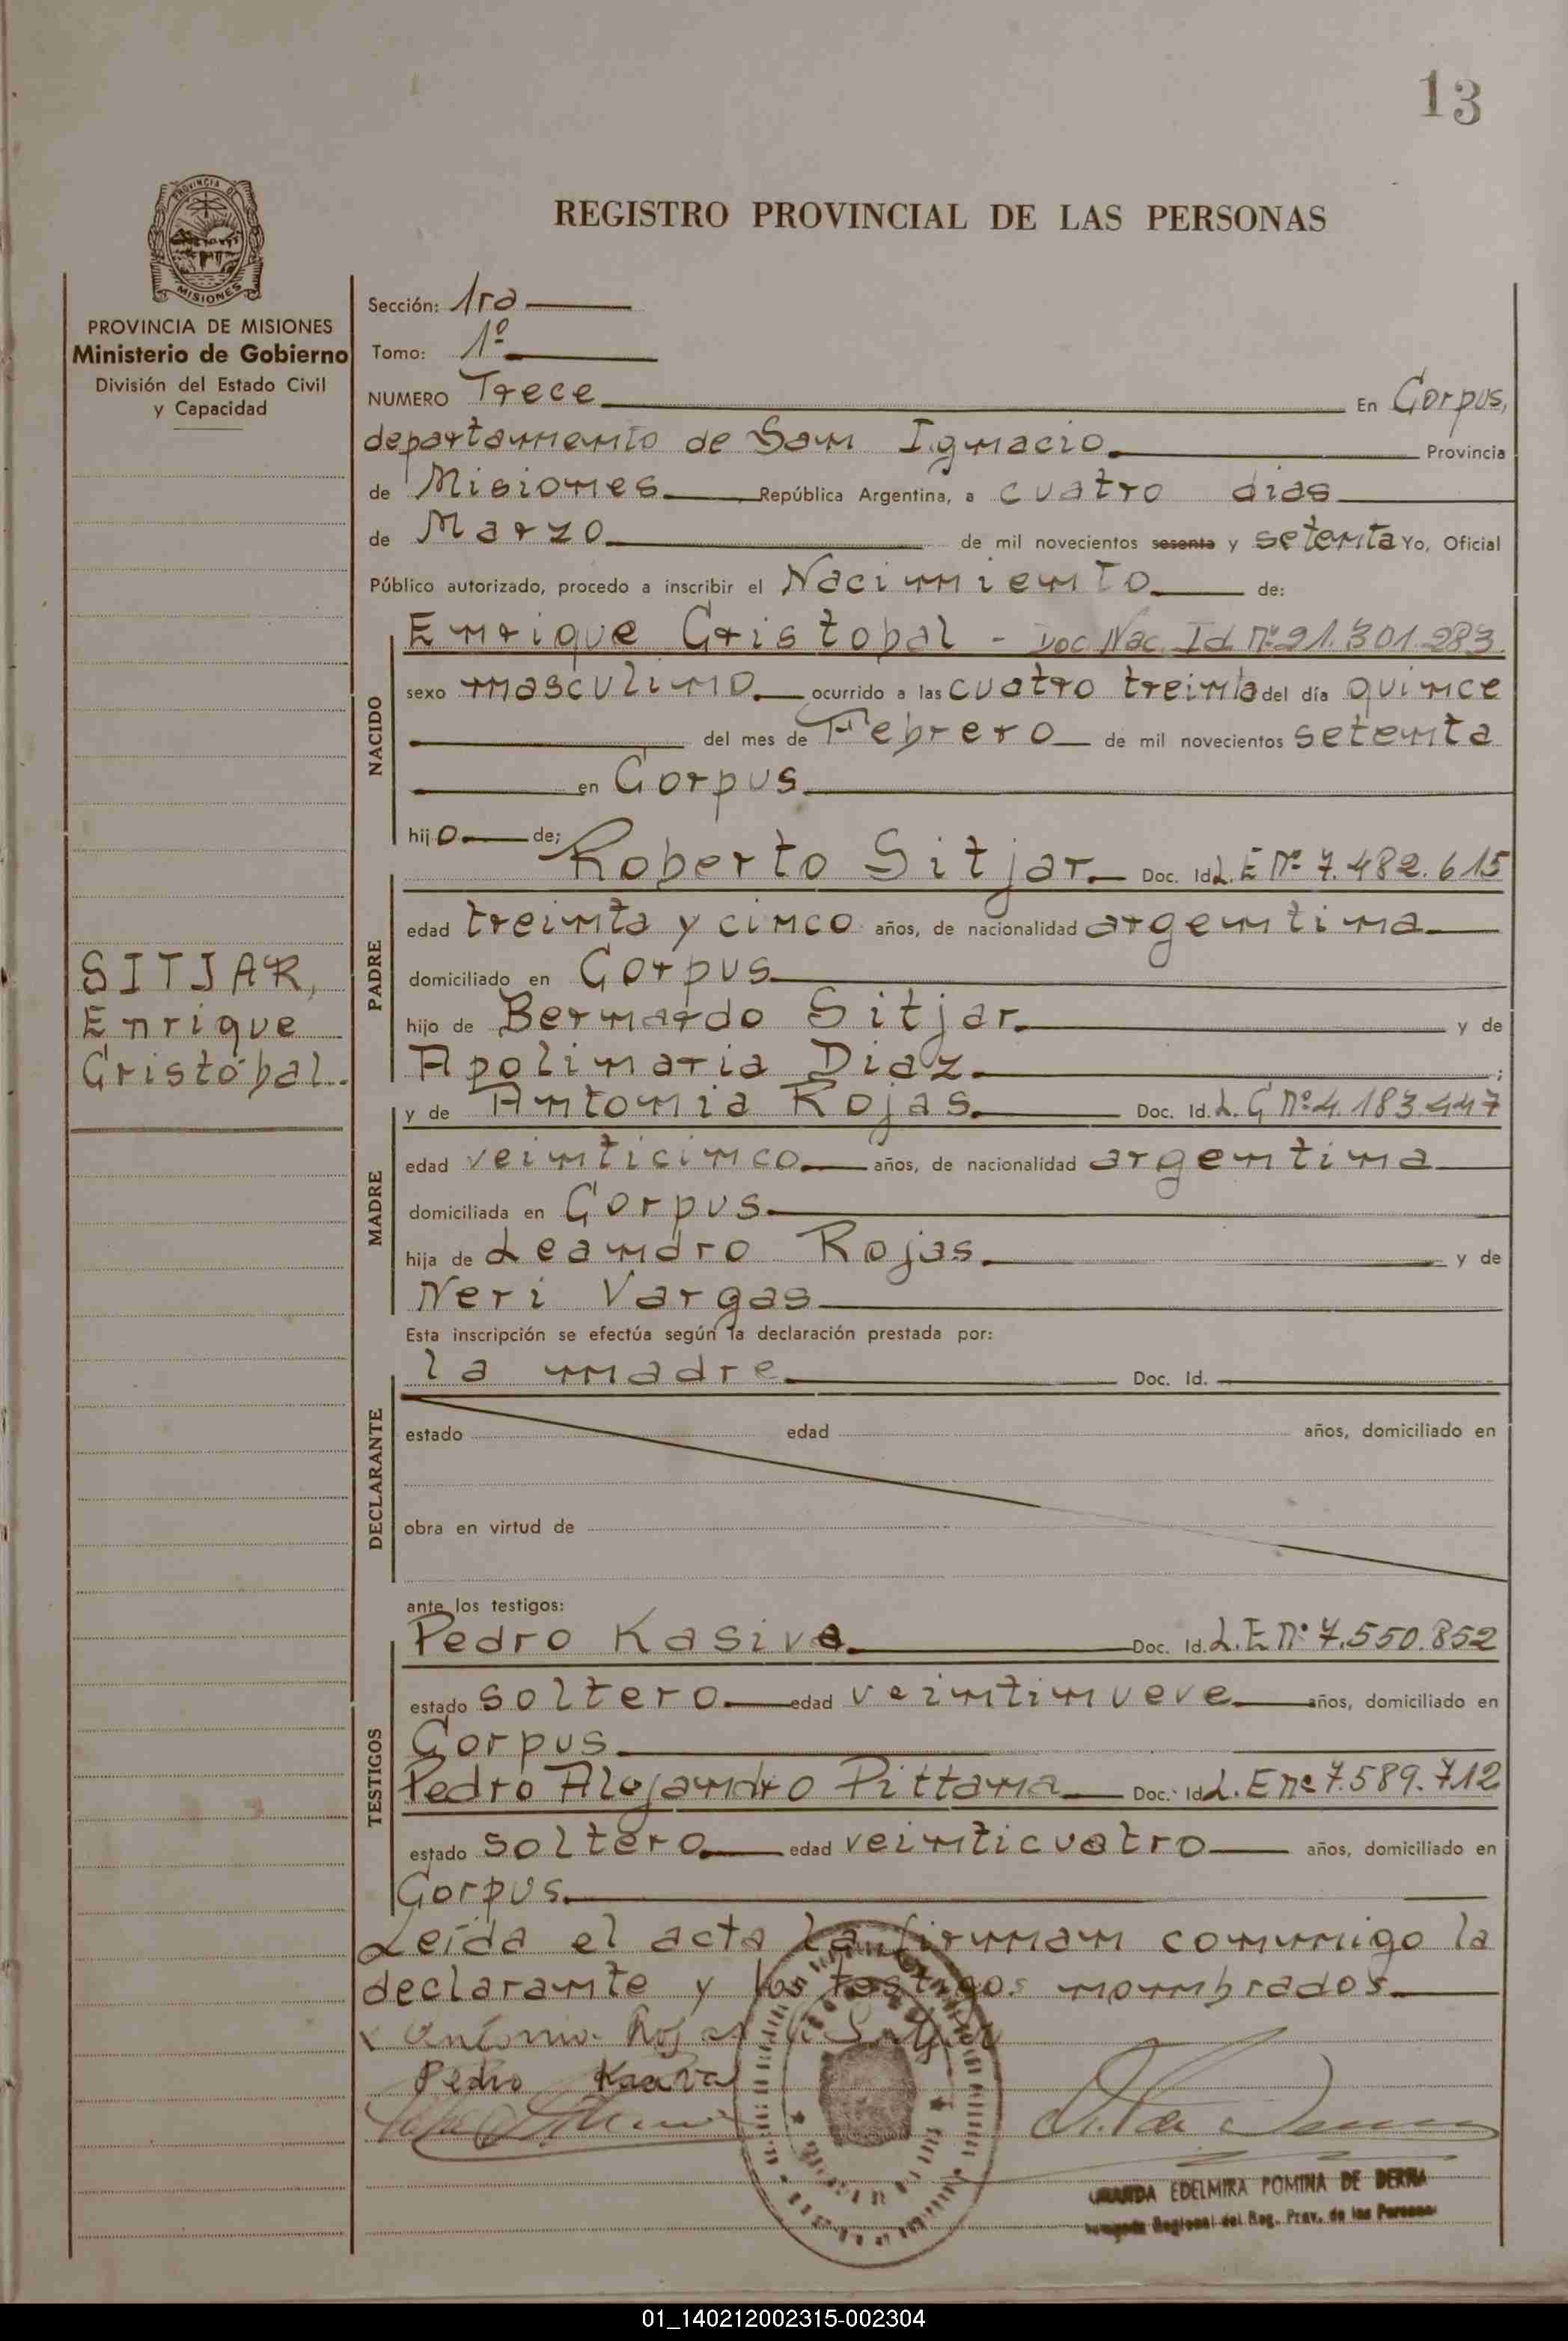 13
PROVINCIA DE
MISIONES
REGISTRO PROVINCIAL DE LAS PERSONAS
PROVINCIA DE MISIONES
Ministerio de Gobierno
División del Estado Civil
y Capacidad
Sección: 1ra
Tomo: 1º
NUMERO Trece En Corpus,
departamento de San Ignacio. Provincia
de Misiones República Argentina, a cuatro dias
de Marzo de mil novecientos sesenta y setenta Yo, Oficial
Público autorizado, procedo a inscribir el Nacimiento de:
NACIDO
Enrique Cristobal - Doc. Nac. Id. Nº 21.301.283
sexo masculino ocurrido a las cuatro treinta del día quince
del mes de Febrero de mil novecientos setenta
en Corpus
hijo de;
PADRE
Roberto Sitjar. Doc. Id. L.E Nº 7.482.615
edad treinta y cinco años, de nacionalidad argentina
domiciliado en Corpus
hijo de Bernardo Sitjar. y de
Apolinaria Diaz. ;
SITJAR,
Enrique
Cristóbal.
MADRE
y de Antonia Rojas. Doc. Id. L.C Nº 4.183.447
edad veinticinco años, de nacionalidad argentina
domiciliada en Corpus.
hija de Leandro Rojas. y de
Neri Vargas
Esta inscripción se efectúa según la declaración prestada por:
DECLARANTE
la madre Doc. Id.
estado edad años, domiciliado en
obra en virtud de
ante los testigos:
TESTIGOS
Pedro Kasiva. Doc. Id. L.E Nº 7.550.852
estado soltero edad veintinueve años, domiciliado en
Corpus
Pedro Alejandro Pittana Doc. Id. L.E Nº 7.589.712
estado soltero edad veinticuatro años, domiciliado en
Corpus.
Leída el acta la firman conmigo la
declarante y los testigos nombrados.
Antonia Rojas
Pedro Kasiva
EDELMIRA POMINA DE
Regional del Reg. Prov. de las Personas
01_140212002315-002304